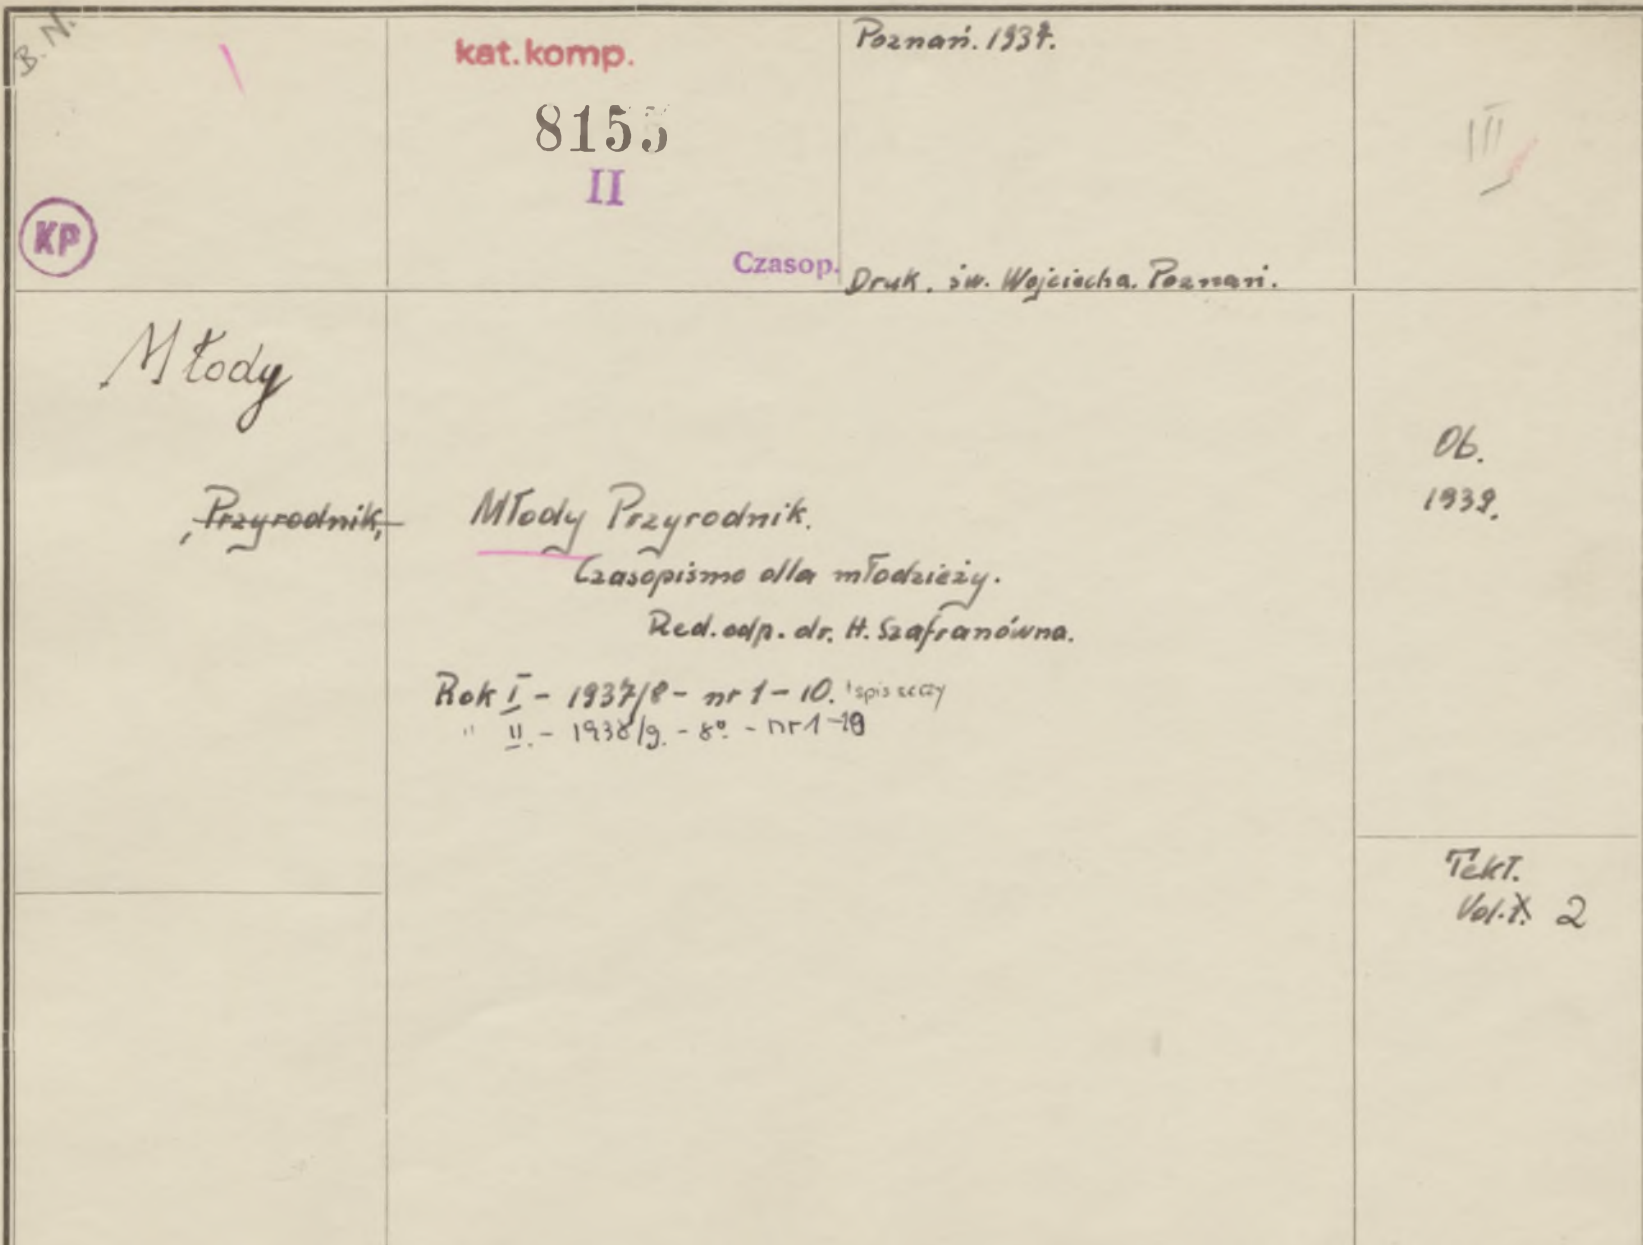 B. N.
kat. komp.
Poznań. 1937.
8155
II
III
KP
Czasop.
Druk. św. Wojciecha. Poznań.
Młody
Przyrodnik,
Młody Przyrodnik.
Czasopismo dla młodzieży.
Red. odp. dr. H. Szafranówna.
Rok I - 1937/8 - nr 1 - 10. i spis rzeczy
" II. - 1938/9. - 8°. - nr 1 -
Ob.
1939.
Tekt.
Vol. 2